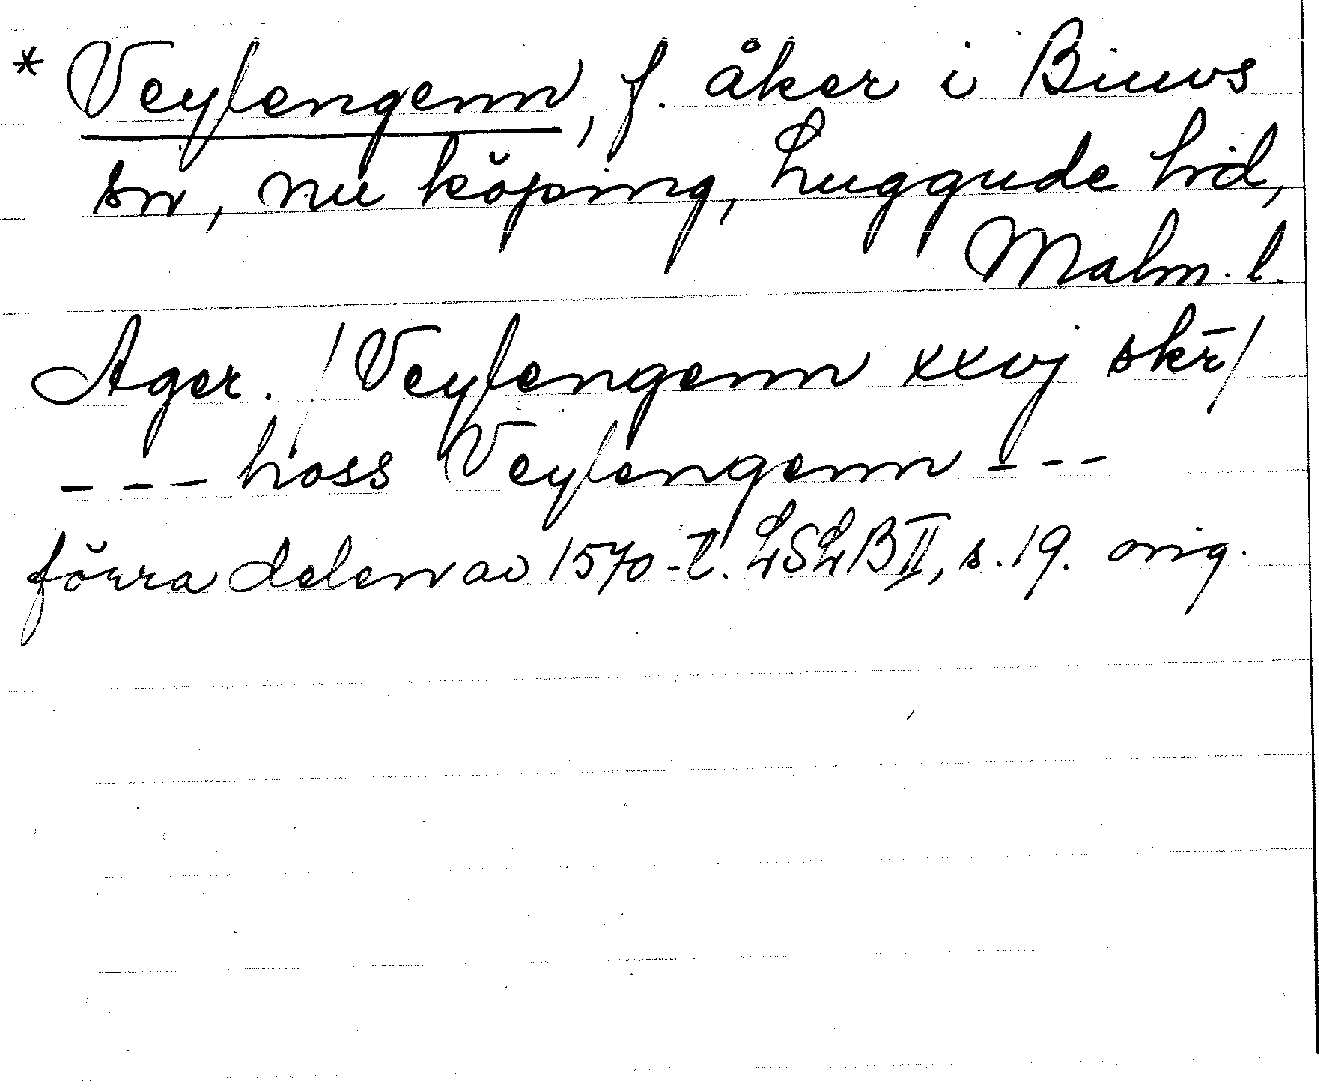 * Veylengenn, f. åker i Biuvs
sn, nu köping, Luggude hd,
Malm. l.
Ager. /Veylengenn xxvj skr̄/
– – – hoss Veylengenn – – –
förra delen av 1570-t. LSLB II, s. 19. orig.